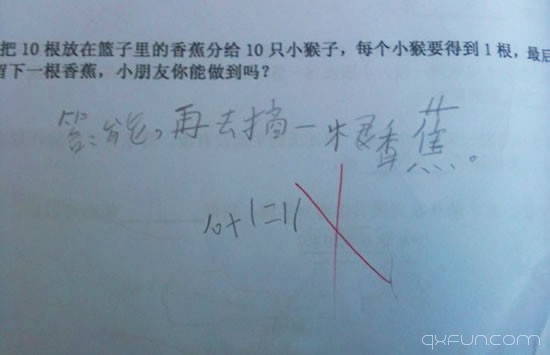 把 10 根放在篮子里的香蕉分给 10 只小猴子，每个小猴要得到 1 根，最后
留下一根香蕉，小朋友你能做到吗？
答:能,再去摘一根香蕉。
10+1=11
qxfun.com